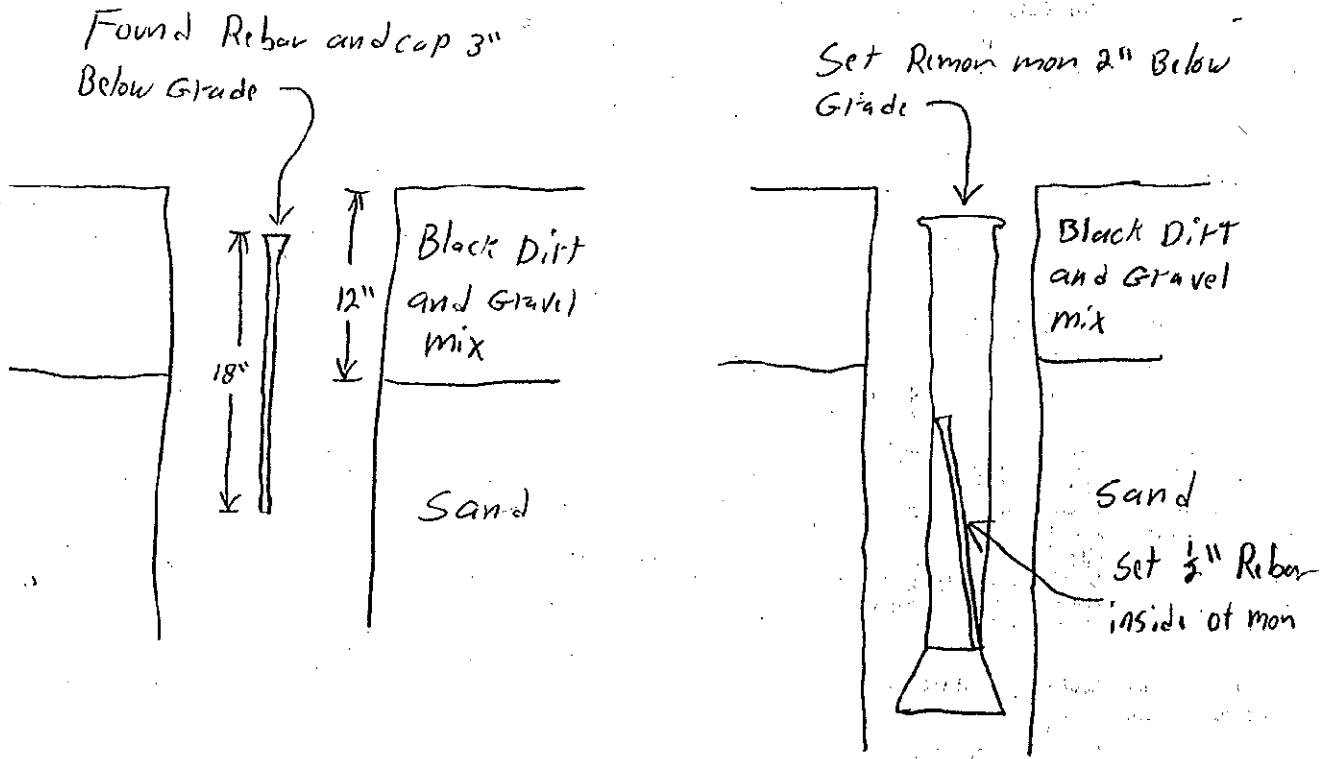 Found Rebar and cap 3"
Below Grade
12"
18"
Black Dirt
and Gravel
mix
Sand
Set Remon mon 2" Below
Grade
Black Dirt
and Gravel
mix
Sand
Set 1/2" Rebar
inside of mon